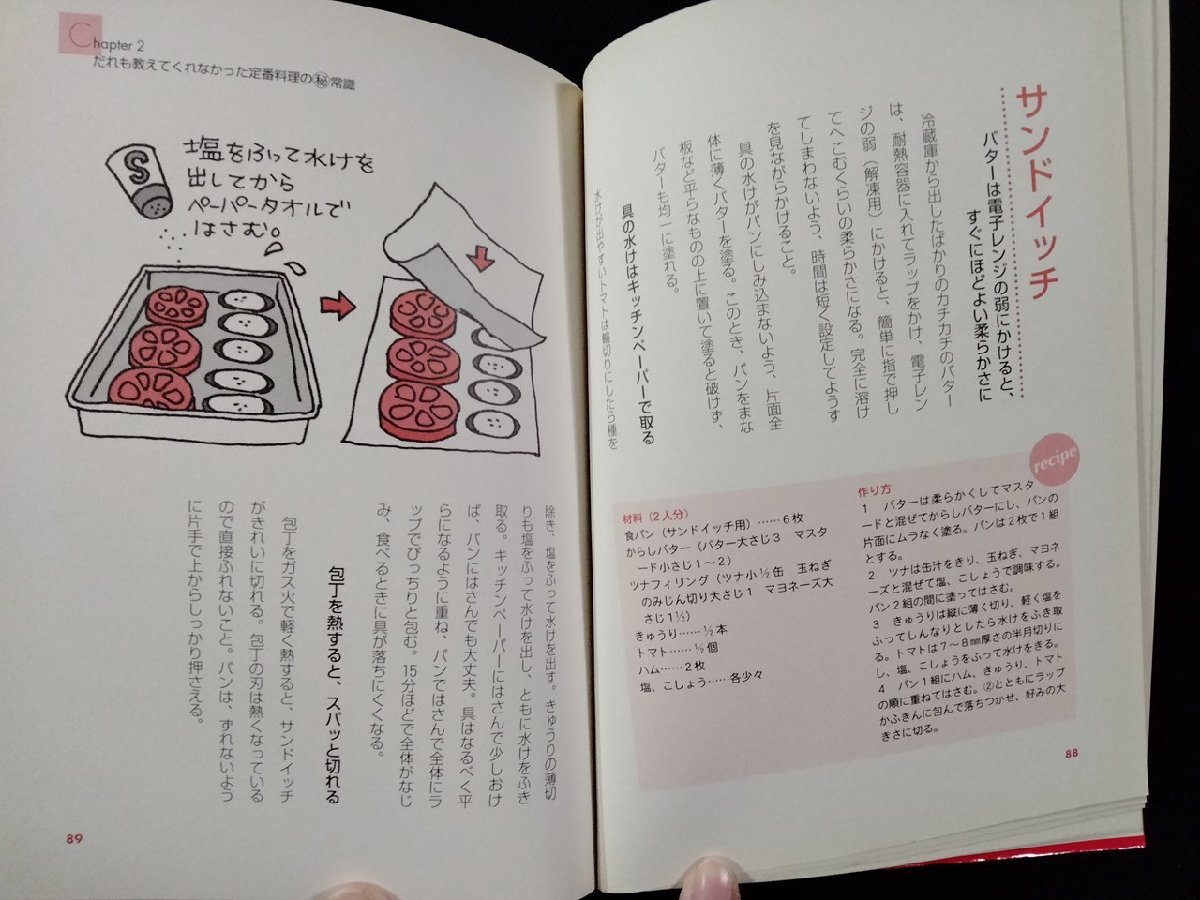 サンドイッチ
バターは電子レンジの弱にかけると、
すぐにほどよい柔らかさに
冷蔵庫から出したばかりのカチカチのバター
は、耐熱容器に入れてラップをかけ、電子レン
ジの弱（解凍用）にかけると、簡単に指で押し
てへこむくらいの柔らかさになる。完全に溶け
てしまわないよう、時間は短く設定してようす
を見ながらかけること。
具の水けがパンにしみ込まないよう、片面全
体に薄くバターを塗る。このとき、パンをまな
板など平らなものの上に置いて塗ると破けず、
バターも均一に塗れる。
具の水けはキッチンペーパーで取る
水けが出やすいトマトは輪切りにしたら種を
recipe
材料（2人分）
食パン（サンドイッチ用）……6枚
からしバター（バター大さじ3 マスタ
ード小さじ1〜2）
ツナフィリング（ツナ小½缶 玉ねぎ
のみじん切り大さじ1 マヨネーズ大
さじ1½）
きゅうり……½本
トマト……½個
ハム……2枚
塩、こしょう……各少々
作り方
1 バターは柔らかくしてマスタ
ードと混ぜてからしバターにし、パンの
片面にムラなく塗る。パンは2枚で1組
とする。
2 ツナは缶汁をきり、玉ねぎ、マヨネ
ーズと混ぜて塩、こしょうで調味する。
パン2組の間に塗ってはさむ。
3 きゅうりは縦に薄く切り、軽く塩を
ふってしんなりとしたら水けをふき取
る。トマトは7〜8㎜厚さの半月切りに
し、塩、こしょうをふって水けをきる。
4 パン1組にハム、きゅうり、トマト
の順に重ねてはさむ。②とともにラップ
かふきんに包んで落ちつかせ、好みの大
きさに切る。
88
Chapter 2
だれも教えてくれなかった定番料理の㊙常識
塩をふって水けを
出してから
ペーパータオルで
はさむ。
S
除き、塩をふって水けを出す。きゅうりの薄切
りも塩をふって水けを出し、ともに水けをふき
取る。キッチンペーパーにはさんで少しおけ
ば、パンにはさんでも大丈夫。具はなるべく平
らになるように重ね、パンではさんで全体にラ
ップでぴっちりと包む。15分ほどで全体がなじ
み、食べるときに具が落ちにくくなる。
包丁を熱すると、スパッと切れる
包丁をガス火で軽く熱すると、サンドイッチ
がきれいに切れる。包丁の刃は熱くなっている
ので直接ふれないこと。パンは、ずれないよう
に片手で上からしっかり押さえる。
89